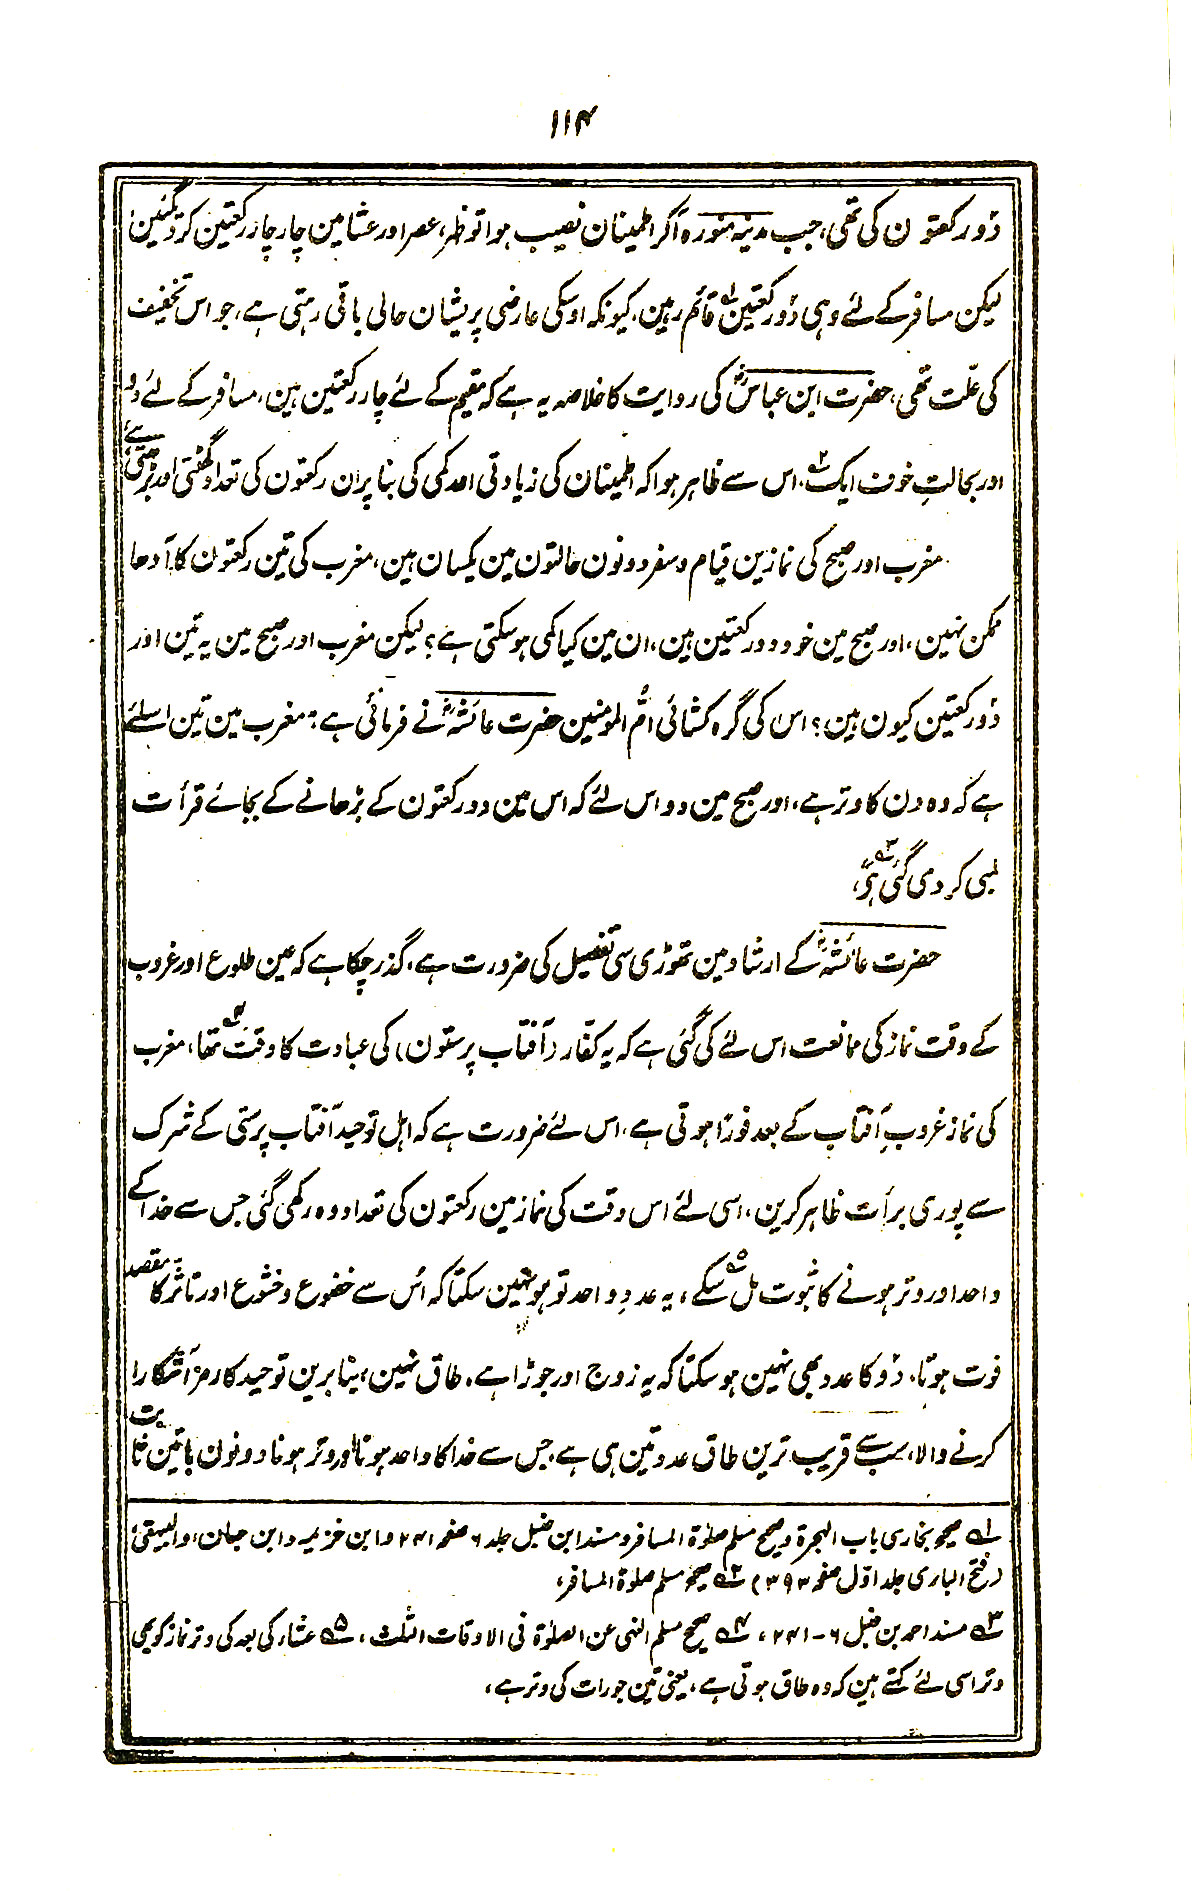 ۱۱۴
دو رکعتون کی تھی، جب مدینہ منورہ آکر اطمینان نصیب ہوا تو ظہر، عصر اور عشا مین چار چار رکعتین کر دیگئین
لیکن مسافر کے لئے وہی دو رکعتین لہ قائم رہین، کیونکہ اوسکی عارضی پریشان حالی باقی رہتی ہے، جو اس تخفیف
کی علّت تھی، حضرت ابن عباسؓ کی روایت کا خلاصہ یہ ہے کہ مقیم کے لئے چار رکعتین ہین، مسافر کے لئے دو
اور بحالتِ خوف ایک ۲ہ، اس سے ظاہر ہوا کہ اطمینان کی زیادتی اور کمی کی بنا پر ان رکعتون کی تعداد گھٹتی اور بڑھتی ہے
مغرب اور صبح کی نمازین قیام و سفر دونون حالتون مین یکسان ہین، مغرب کی تین رکعتون کا آدھا
ممکن نہین، اور صبح مین خود دو رکعتین ہین، ان مین کیا کمی ہو سکتی ہے؟ لیکن مغرب اور صبح مین یہ تین اور
دو رکعتین کیون ہین؟ اس کی گرہ کشائی امُّ المومنین حضرت عائشہؓ نے فرمائی ہے: مغرب مین تین اسلئے
ہے کہ وہ دن کا وتر ہے، اور صبح مین دو اس لئے کہ اس مین دو رکعتون کے بڑھانے کے بجائے قرأت
لمبی کر دی گئی ۳ہ ہی،
حضرت عائشہؓ کے ارشاد مین تھوڑی سی تفصیل کی ضرورت ہے، گذر چکا ہے کہ عین طلوع اور غروب
کے وقت نماز کی ممانعت اس لئے کی گئی ہے کہ یہ کفّار (آفتاب پرستون) کی عبادت کا وقت ۴ہ تھا، مغرب
کی نماز غروبِ آفتاب کے بعد فوراً ہوتی ہے، اس لئے ضرورت ہے کہ اہل توحید آفتاب پرستی کے شرک
سے پوری برأت ظاہر کرین، اسی لئے اس وقت کی نماز مین رکعتون کی تعداد وہ رکھی گئی جس سے خدا کے
واحد اور وتر ہونے کا ثبوت مل سکے ۵ہ، یہ عددِ واحد تو ہو نہین سکتا کہ اُس سے خضوع و خشوع اور تاثر کا مقصد
فوت ہوتا، دو کا عدد بھی نہین ہو سکتا کہ یہ زوج اور جوڑا ہے، طاق نہین، بنا برین توحید کا رمز آشکارا
کرنے والا، سب سے قریب ترین طاق عدد تین ہی ہے، جس سے خدا کا واحد ہونا اور وتر ہونا دونون باتین ثابت
لہ صحیح بخاری باب الہجرۃ و صحیح مسلم صلوٰۃ المسافر و مسند ابن حنبل جلد ۶ صفحہ ۲۴۱ و ابن خزیمہ و ابن حبان، والبیہقی،
(فتح الباری جلد اوّل صفحہ ۳۹۳) ۲ہ صحیح مسلم صلوۃ المسافر،
۳ہ مسند احمد بن حنبل ۶-۲۴۱، ۴ہ صحیح مسلم النہی عن الصلوۃ فی الاوقات الثلث، ۵ہ عشا کی بعد کی وتر نماز کو بھی
وتر اسی لئے کہتے ہین کہ وہ طاق ہوتی ہے، یعنی تین جو رات کی وتر ہے،